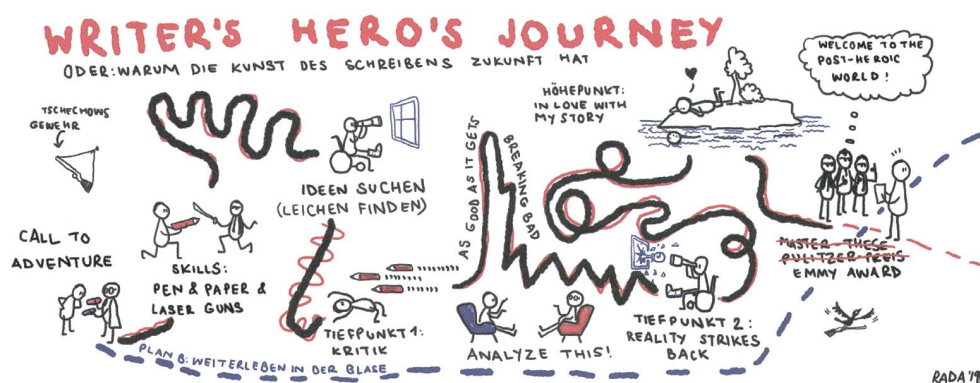 WRITER'S HERO'S JOURNEY
ODER: WARUM DIE KUNST DES SCHREIBENS ZUKUNFT HAT
TSCHECHOWS
GEWEHR
CALL TO
ADVENTURE
SKILLS:
PEN & PAPER &
LASER GUNS
PLAN B: WEITERLEBEN IN DER BLASE
IDEEN SUCHEN
(LEICHEN FINDEN)
TIEFPUNKT 1:
KRITIK
AS GOOD AS IT GETS
BREAKING BAD
ANALYZE THIS!
HÖHEPUNKT:
IN LOVE WITH
MY STORY
TIEFPUNKT 2:
REALITY STRIKES
BACK
WELCOME TO THE
POST-HEROIC
WORLD!
MASTER-THESE
PULITZER-PREIS
EMMY AWARD